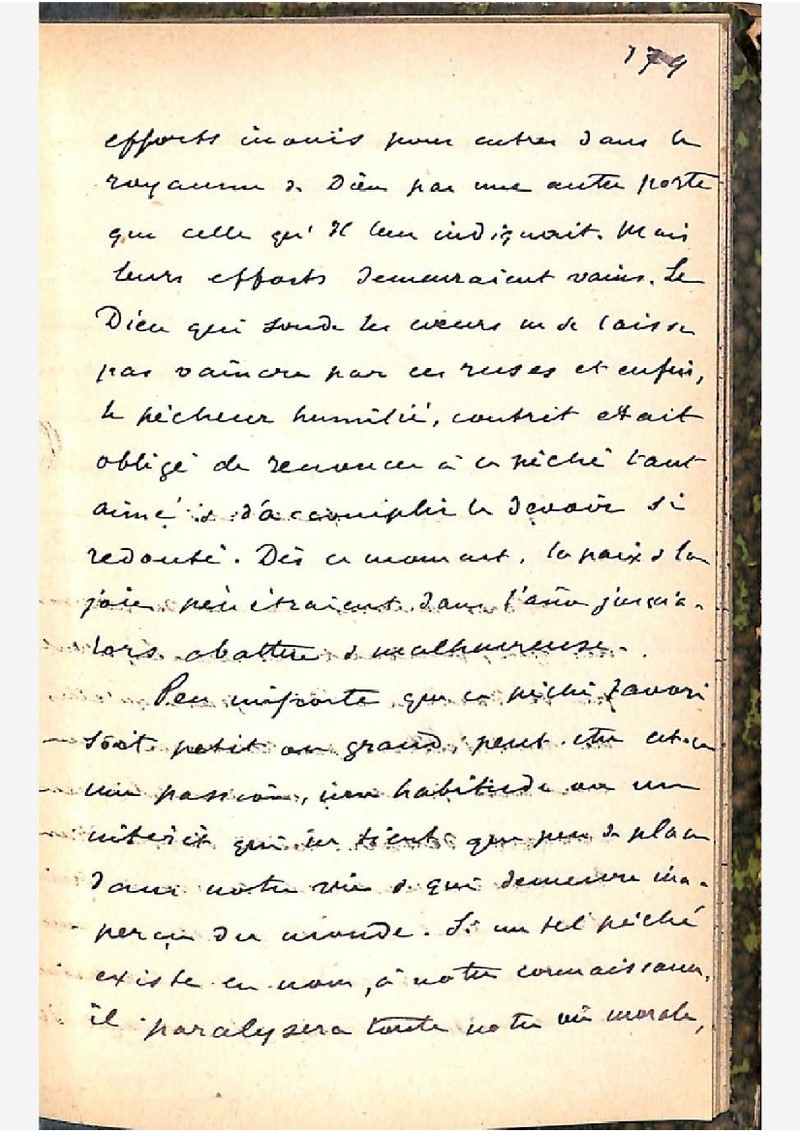 179
efforts inouis pour entrer dans le
royaume de Dieu par une autre porte
que celle qu'Il leur indiquait. Mais
leurs efforts demeuraient vains. Le
Dieu qui sonde les cœurs ne se laisse
pas vaincre par ces ruses et enfin,
le pécheur humilié, contrit était
obligé de renoncer à ce péché tant
aimé & d'accomplir le devoir si
redouté. Dès ce moment, la paix & la
joie pénétraient dans l'âme jusqu'a-
lors abattue & malheureuse.
Peu importe que ce péché favori
soit petit ou grand, peut-être est-ce
une passion, une habitude ou un
intérêt qui ne tient que peu de place
dans notre vie & qui demeure ina-
perçu du monde. Si un tel péché
existe en nous, à notre connaissance,
il paralysera toute notre vie morale,